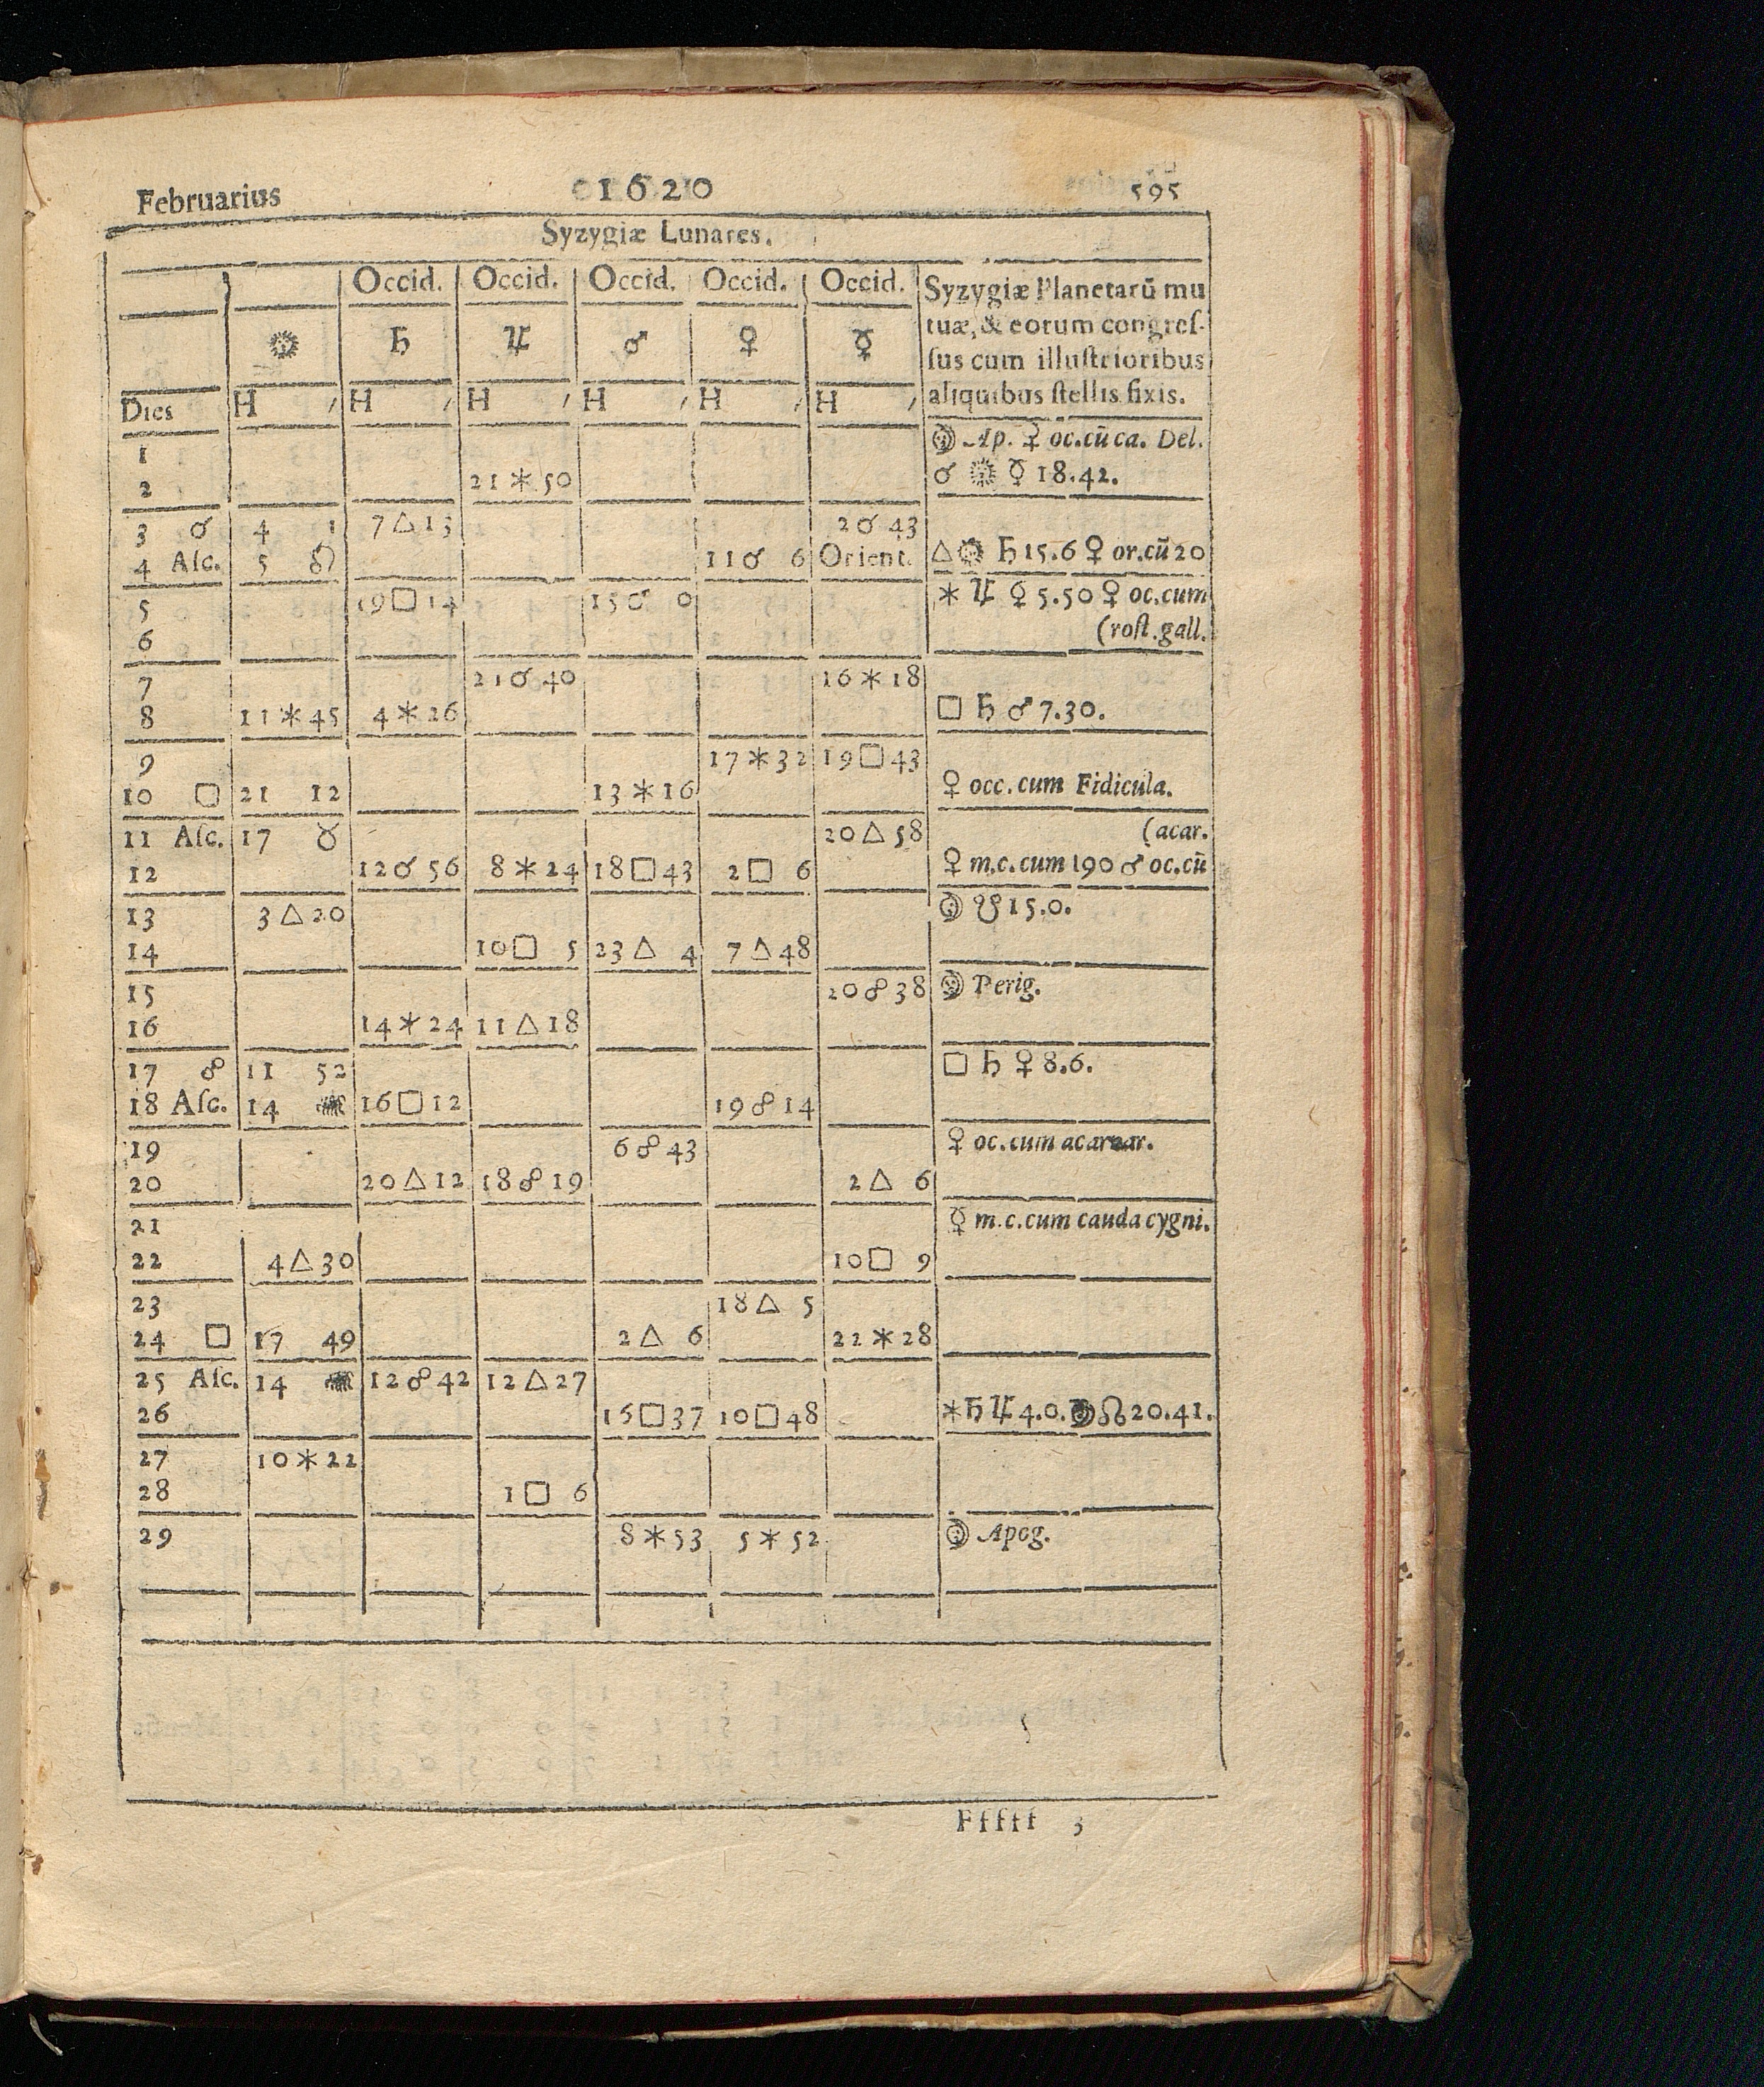 Februarius 1620 595
Syzygiæ Lunares.
Occid. Occid. Occid. Occid. Occid. Syzygiæ Planetarũ mu
tuæ, & eorum congreſ-
☉ ♄ ♃ ♂ ♀ ☿
ſus cum illuſtrioribus
Dies H ′ H ′ H ′ H ′ H ′ H ′ aliquibus ſtellis fixis.
1 ☽ Ap. ☿ oc.cũ ca. Del.
2 21 ⚹ 50 ☌ ☉ ☿ 18.42.
3 ☌ 4 1 7 △ 13 2 ☌ 43
4 Aſc. 5 11 ☌ 6 Orient. △ ☉ ♄ 15.6 ♀ or.cũ 20
5 19 □ 14 15 ☌ 0 ⚹ ♃ ♀ 5.50 ♀ oc.cum
6 (roſt.gall.
7 21 ☌ 40 16 ⚹ 18
8 11 ⚹ 45 4 ⚹ 26 □ ♄ ♂ 7.30.
9 17 ⚹ 32 19 □ 43
10 □ 21 12 13 ⚹ 16 ♀ occ.cum Fidicula.
11 Aſc. 17 ♉ 20 △ 58 (acar.
12 12 ☌ 56 8 ⚹ 24 18 □ 43 2 □ 6 ♀ m.c.cum 190 ♂ oc.cũ
13 3 △ 20 ☽ ☋ 15.0.
14 10 □ 5 23 △ 4 7 △ 48
15 20 ☍ 38 ☽ Perig.
16 14 ⚹ 24 11 △ 18
17 ☍ 11 52 □ ♄ ♀ 8.6.
18 Aſc. 14 16 □ 12 19 ☍ 14
19 6 ☍ 43 ♀ oc.cum acarnar.
20 20 △ 12 18 ☍ 19 2 △ 6
21 ☿ m.c.cum cauda cygni.
22 4 △ 30 10 □ 9
23 18 △ 5
24 □ 17 49 2 △ 6 22 ⚹ 28
25 Aſc. 14 12 ☍ 42 12 △ 27
26 15 □ 37 10 □ 48 ⚹ ♄ ♃ 4.0. ☽ ☊ 20.41.
27 10 ⚹ 22
28 1 □ 6
29 8 ⚹ 53 5 ⚹ 52 ☽ Apog.
Fffff 3